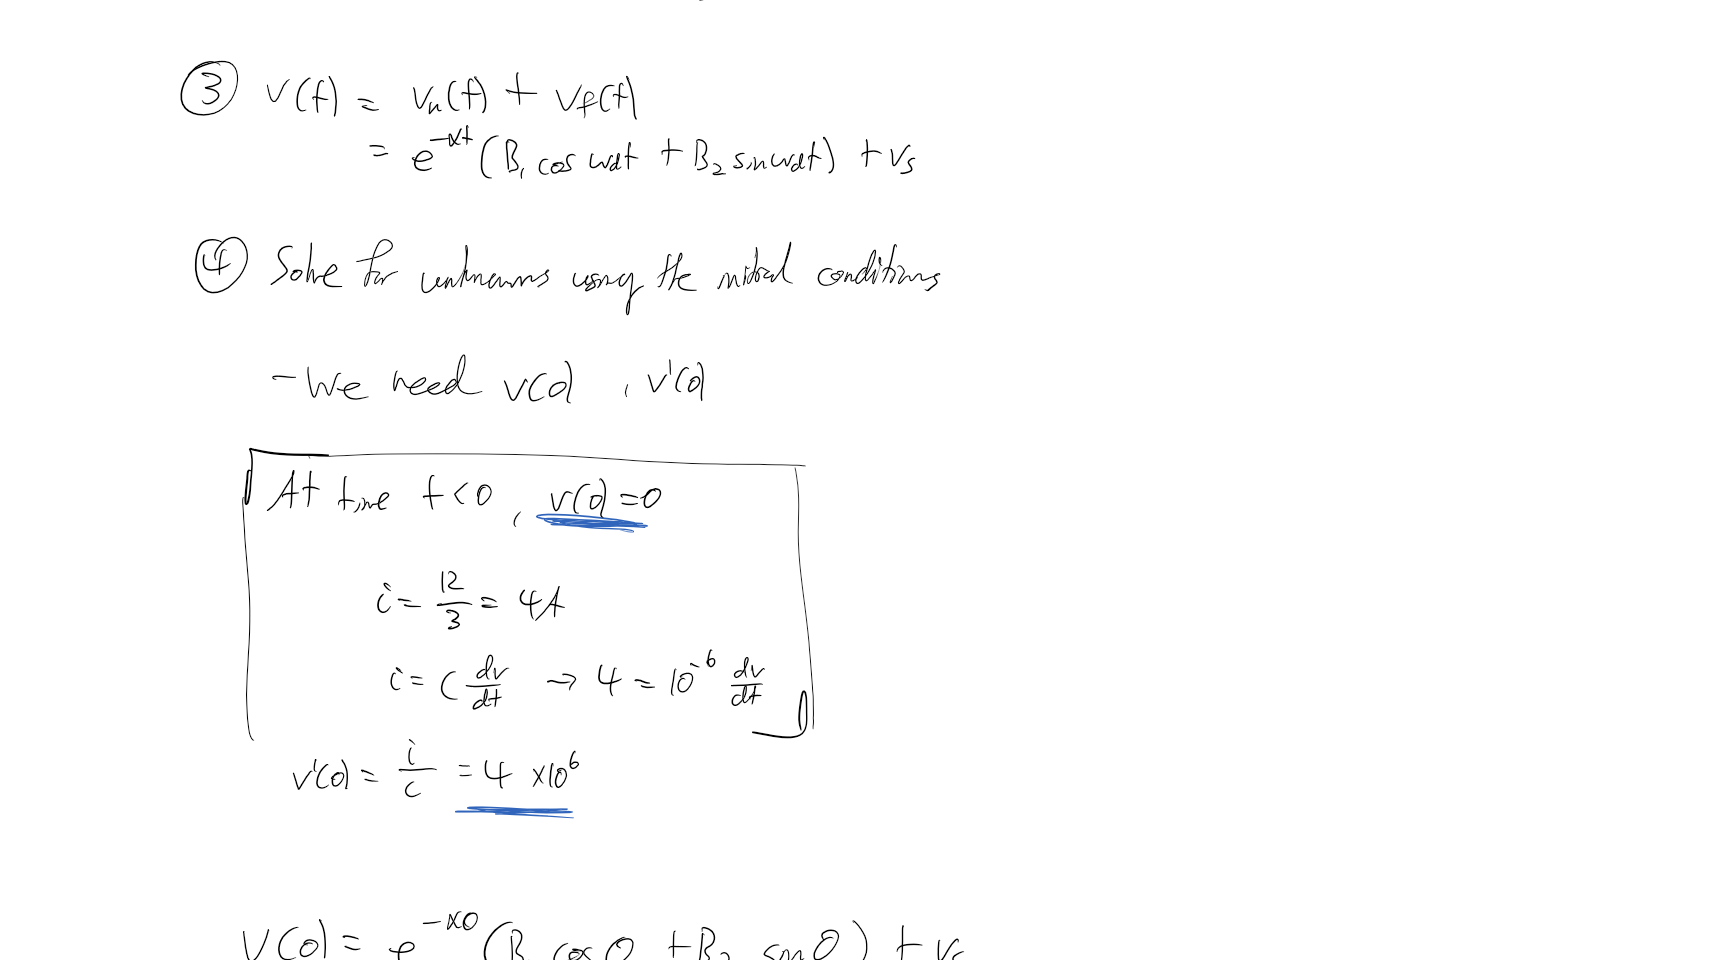 ③ v(t) = vn(t) + vf(t)
= e^-αt (B1 cos wdt + B2 sin wdt) + vs
④ Solve for unknowns using the initial conditions
- We need v(0) , v'(0)
At time t<0 , v(0)=0
i = 12/3 = 4A
i = C dv/dt → 4 = 10^-6 dv/dt
v'(0) = i/c = 4 ×10^6
v(0) = e^-α0 (B cos 0 + B2 sin 0) + vs